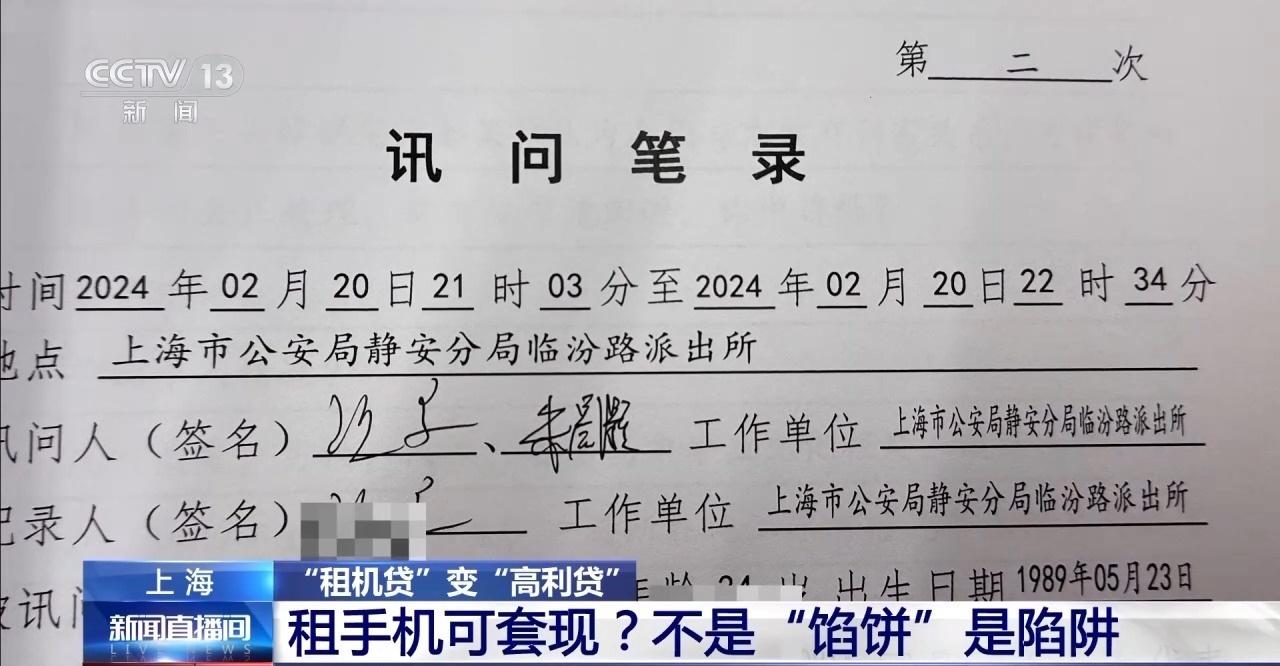 CCTV 13
新闻
第 二 次
讯问笔录
时间2024年02月20日21时03分至2024年02月20日22时34分
地点 上海市公安局静安分局临汾路派出所
讯问人（签名） 、 工作单位 上海市公安局静安分局临汾路派出所
记录人（签名） 工作单位 上海市公安局静安分局临汾路派出所
被讯问 年龄 34 岁 出生日期 1989年05月23日
上海 “租机贷”变“高利贷”
新闻直播间 租手机可套现？不是“馅饼”是陷阱
LIVE NEWS